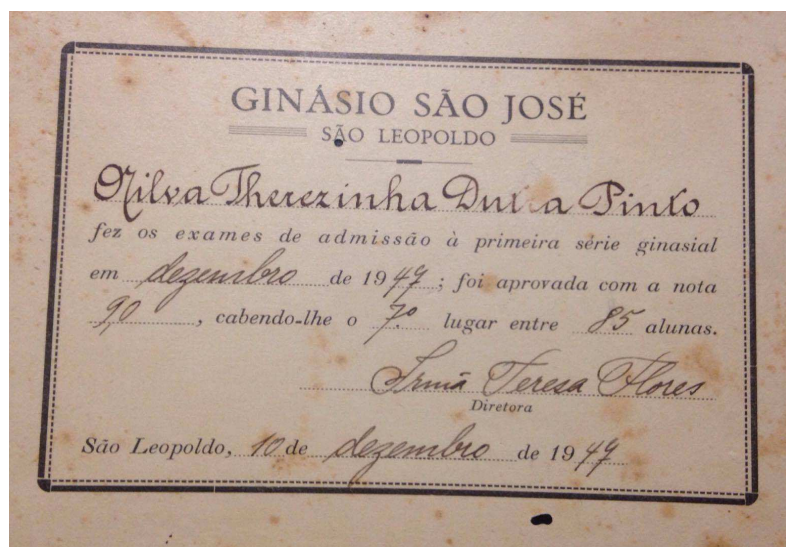 GINÁSIO SÃO JOSÉ
SÃO LEOPOLDO
Nilva Therezinha Dutra Pinto
fez os exames de admissão à primeira série ginasial
em dezembro de 1947; foi aprovada com a nota
9,0, cabendo-lhe o 7.º lugar entre 85 alunas.
Irmã Teresa Flores
Diretora
São Leopoldo, 10 de dezembro de 1947